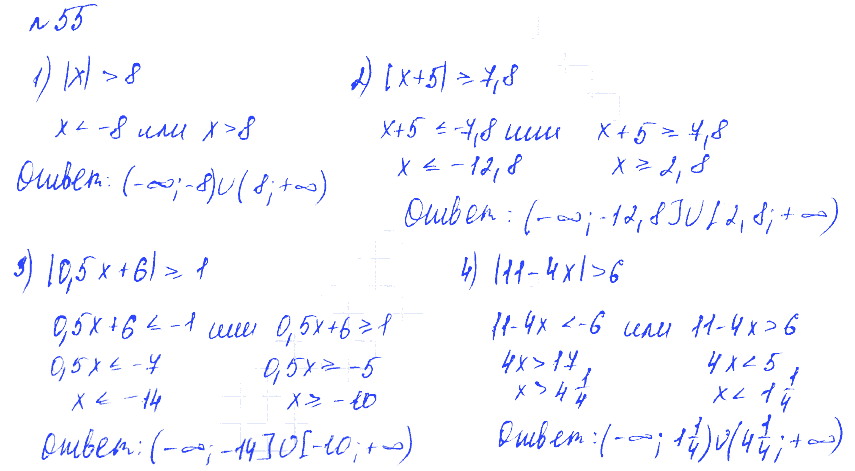 №55
1) |x| > 8
x < -8 или x > 8
Ответ: (-∞; -8)∪(8; +∞)
2) |x+5| ≥ 7,8
x+5 ≤ -7,8 или x+5 ≥ 7,8
x ≤ -12,8 x ≥ 2,8
Ответ: (-∞; -12,8]∪[2,8; +∞)
3) |0,5x+6| ≥ 1
0,5x+6 ≤ -1 или 0,5x+6 ≥ 1
0,5x ≤ -7 0,5x ≥ -5
x ≤ -14 x ≥ -10
Ответ: (-∞; -14]∪[-10; +∞)
4) |11-4x| > 6
11-4x < -6 или 11-4x > 6
4x > 17 4x < 5
x > 4 1/4 x < 1 1/4
Ответ: (-∞; 1 1/4)∪(4 1/4; +∞)